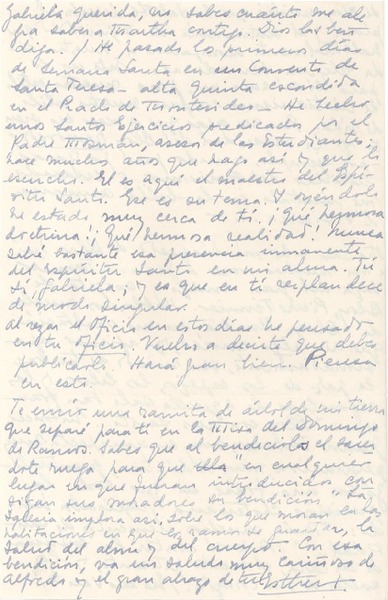 Gabriela querida, no sabes cuánto me ale-
gra saber a Martha contigo. Dios las ben-
diga. / He pasado los primeros días
de Semana Santa en un Convento de
Santa Teresa - alta quinta escondida
en el Prado de Montevideo - He hecho
unos Santos Ejercicios predicados por el
Padre Mosman, asesor de los Estudiantes.
hace muchos años que hago así y que lo
escucho. El es aquí el maestro del Espí-
ritu Santo. Ese es su tema. Y oyéndole
he estado muy cerca de tí. ¡Qué hermosa
doctrina! ¡Qué hermosa realidad! Nunca
sabré bastante esa presencia inmanente
del Espíritu Santo en mi alma. Tú
sí, Gabriela; y es que en tí resplan dece
de modo singular.
Al rezar el Oficio en estos días he pensado
en tu Oficio. Vuelvo a decirte que debes
publicarlo. Hará gran bien. Piensa
en esto.
Te envío una ramita de árbol de mi tierra
que separé para tí en la Misa del Domingo
de Ramos. Sabes que al bendecirlos el sacer-
dote ruega para que "en cualquier
lugar en que sean introducidos con
sigan sus moradores su bendición" La
Iglesia implora así, sobre los que moran en las
habitaciones en que los ramos se guardan, la
salud del alma y del cuerpo. Con esa
bendición, va un saludo muy cariñoso de
Alfredo y el gran abrazo de tu Esther